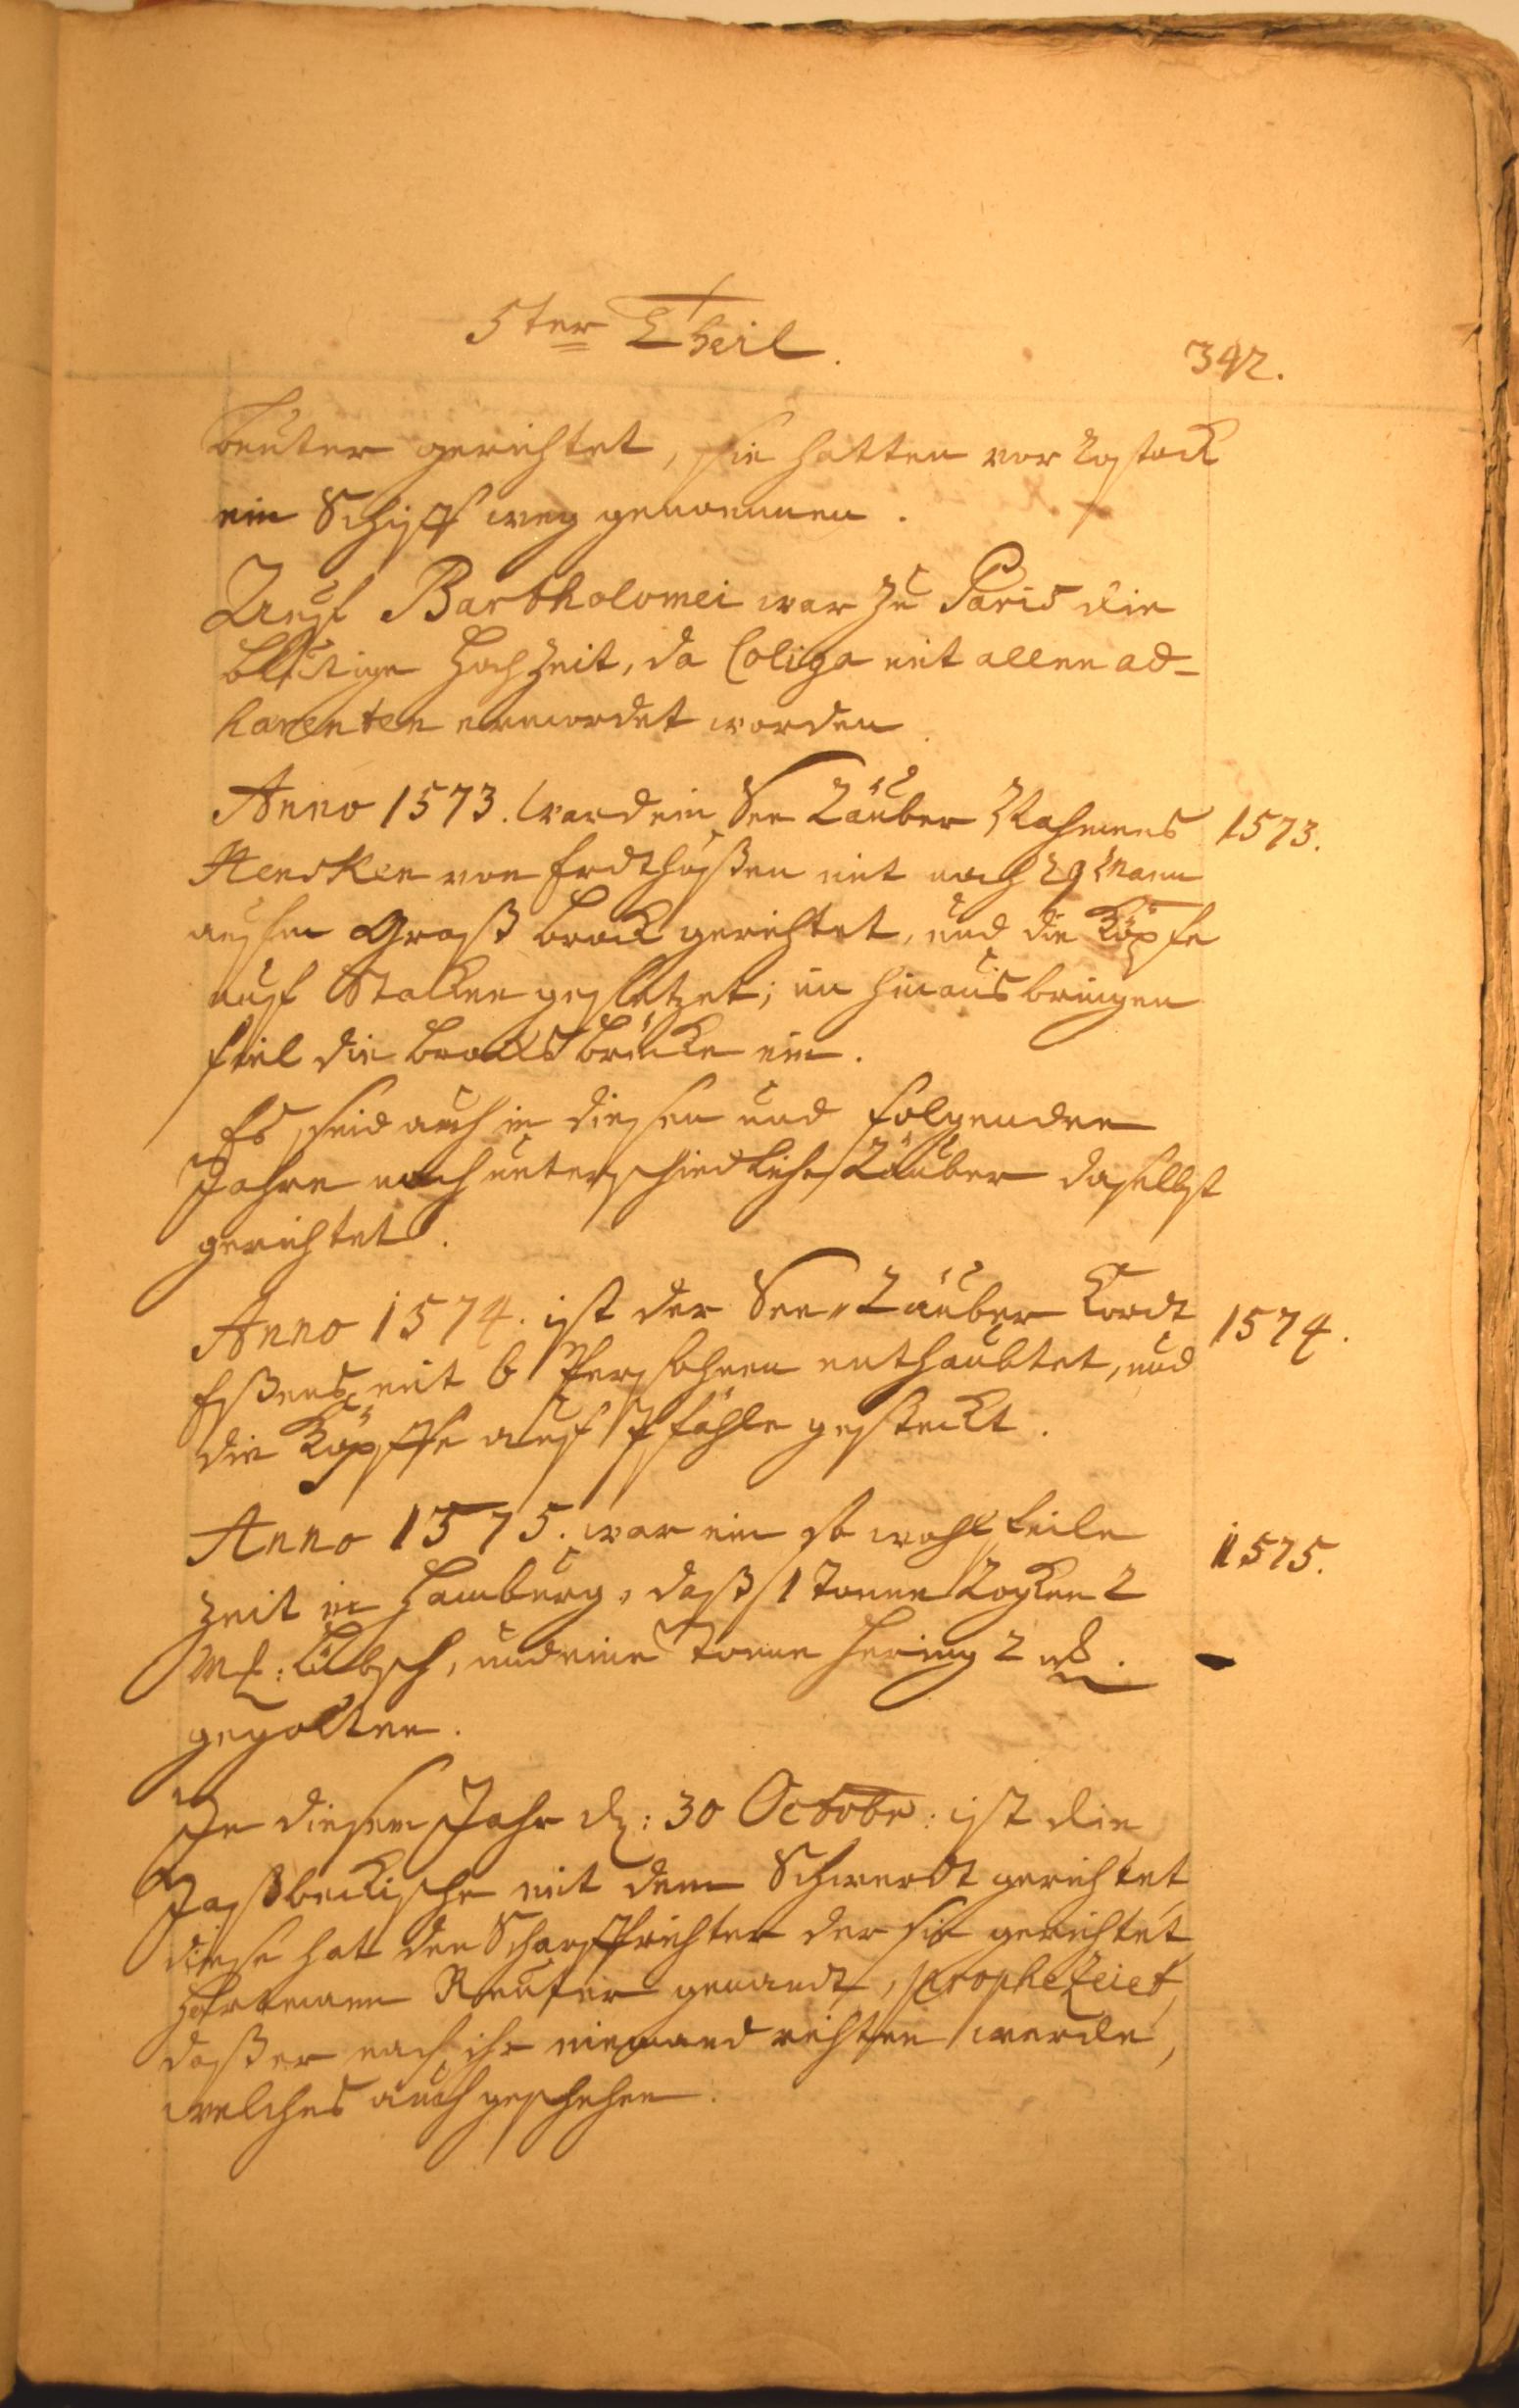 5ter Theil.
342.
beuter gerichtet, sie hatten vor Rostock
ein Schiff weg genommen.
Auff Bartholomei war zu Paris die
blutige Hochzeit, da Coliga mit allen ad-
harenten ermordet worden.
Anno 1573. ward ein See Räuber Nahmens
1573.
Hencken von mit noch 29 Mann
aufm Graß brock gerichtet, und die Köpfe
auff Staken gesetzet; im hinausbringen
fiel die Brocks brücke ein.
Es seind auch in diesen und folgenden
Jahre noch unterschiedliche Räuber daselbst
gerichtet.
Anno 1574. ist der See-Räuber Kordt
1574.
mit 6 Persohnen enthaubtet, und
die Köpffe auff Pfähle gesteckt.
Anno 1575. war ein so wohlfeile
1575.
Zeit in Hamburg, daß 1 Tonne Rocken 2
Mk: Lübsch, und eine Tonne Hering 2
gegolten.
In diesem Jahr d: 30 Octobr: ist die
mit dem Schwerdt gerichtet,
diese hat den Scharffrichter der sie gerichtet,
genandt, propheZeiet,
daß er nach ihr niemand richten werde,
welches auch geschehen.